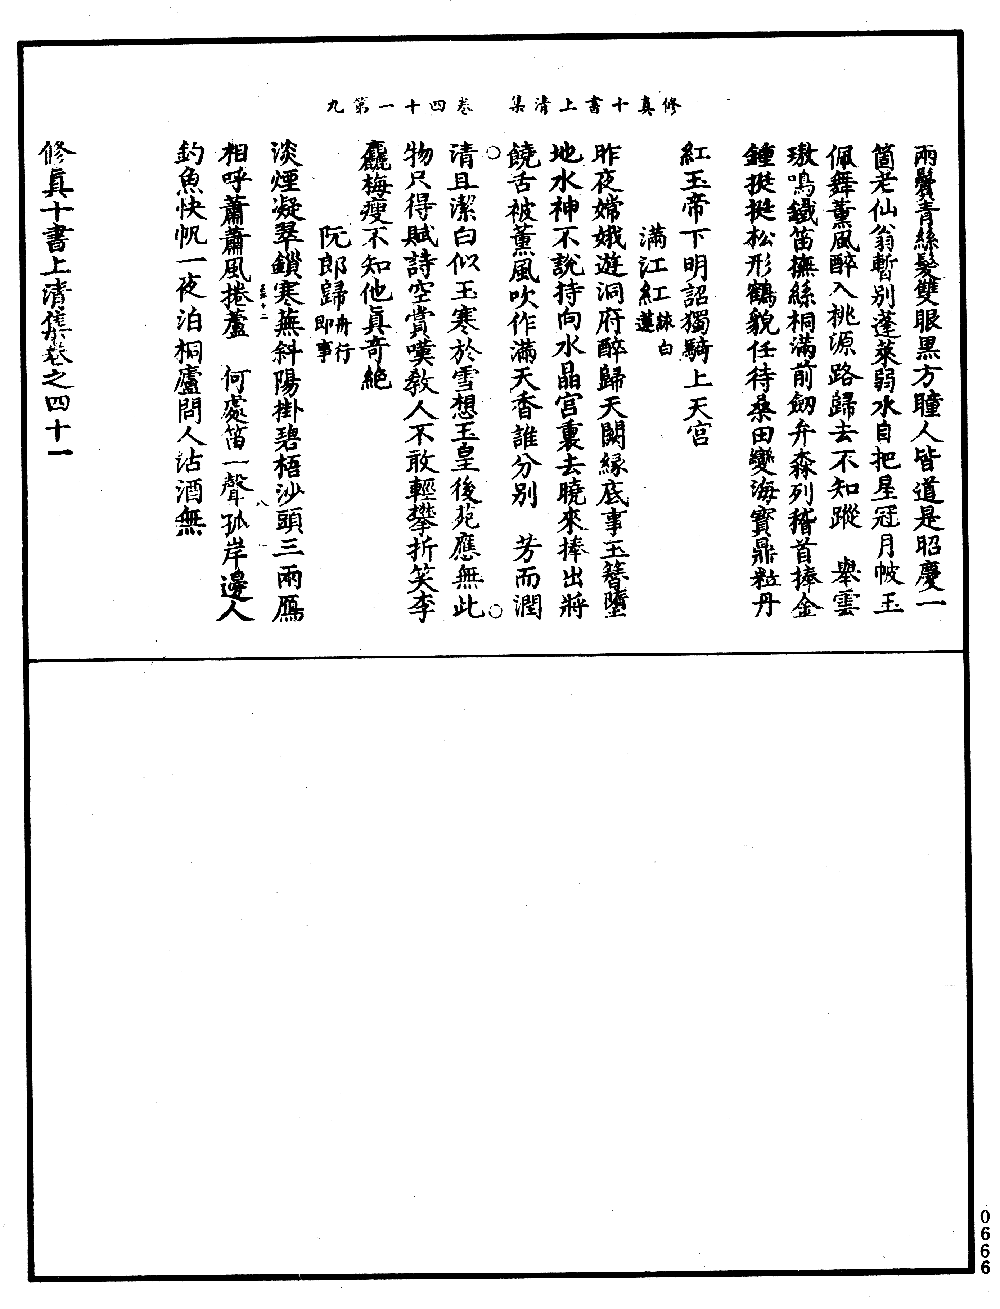 修真十書上清集　卷四十一第九
兩鬢青絲髮雙眼黑方瞳人皆道是昭慶一
箇老仙翁暫別蓬萊弱水自把星冠月帔玉
佩舞薰風醉入桃源路歸去不知蹤　舉雲
璈鳴鐵笛撫絲桐滿前劒弁森列稽首捧金
鍾挺挺松形鶴貌任待桑田變海寶鼎粒丹
紅玉帝下明詔獨騎上天宮
滿江紅詠白蓮
昨夜嫦娥遊洞府醉歸天闕緣底事玉簪墮
地水神不說持向水晶宮裏去曉來捧出將
饒舌被薰風吹作滿天香誰分別　芳而潤
清且潔白似玉寒於雪想玉皇後苑應無此
物只得賦詩空賞嘆教人不敢輕攀折笑李
麤梅瘦不知他真奇絕
阮郎歸舟行即事
淡煙凝翠鎖寒蕪斜陽掛碧梧沙頭三兩鴈
相呼蕭蕭風捲蘆　何處笛一聲孤岸邊人
釣魚快帆一夜泊桐廬問人沽酒無
修真十書上清集卷之四十一
0666